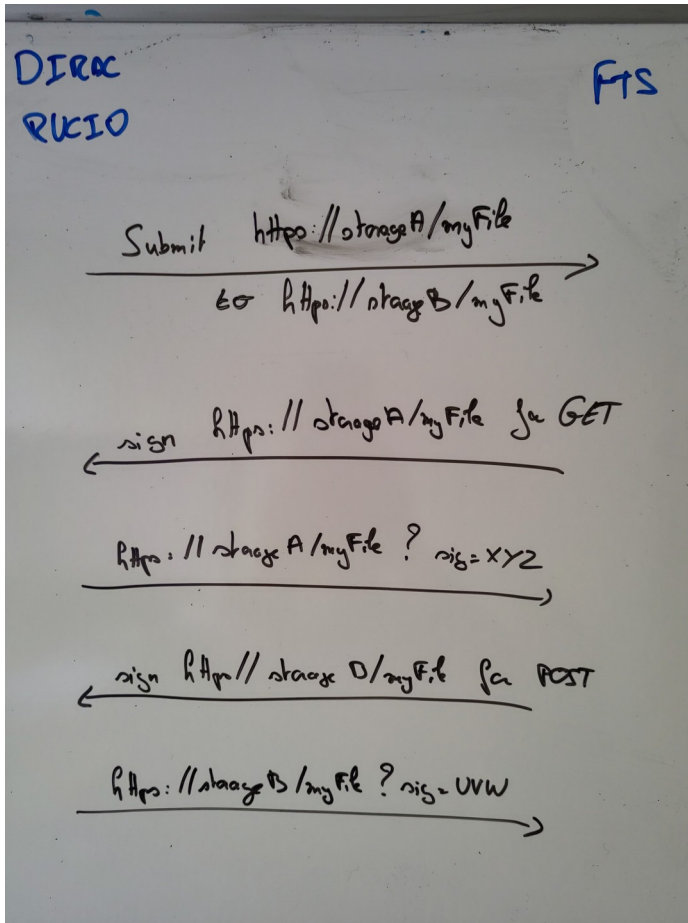 DIRAC
RUCIO
FTS
Submit https://storageA/myFile
to https://storageB/myFile
sign https://storageA/myFile for GET
https://storageA/myFile ? sig=XYZ
sign http//storage B/myFile for POST
https://storageB/myFile ? sig=UVW